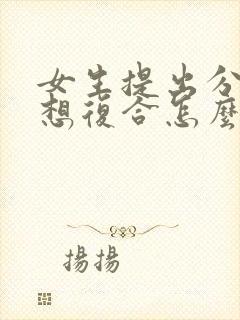 女生提出分
想復合怎麼
揚揚